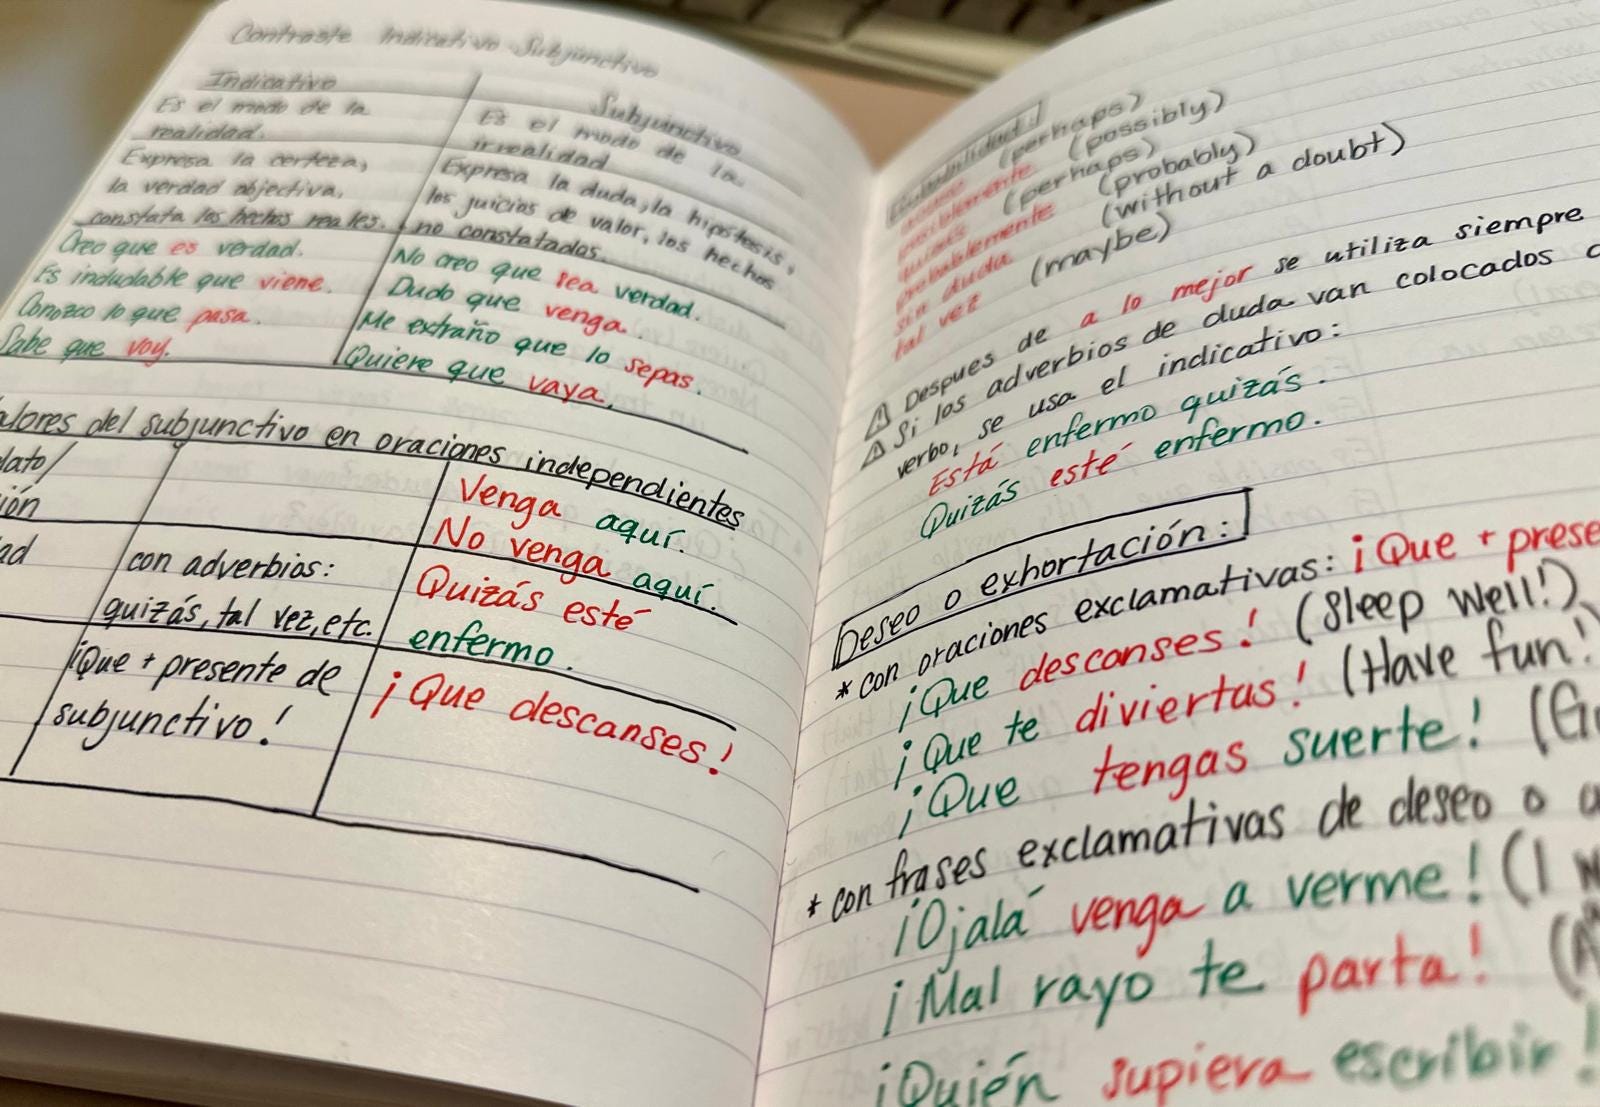 Contraste Indicativo Subjunctivo
Indicativo
Es el modo de la
realidad.
Expresa la certeza,
la verdad objectiva,
constata los hechos reales.
Creo que es verdad.
Es indudable que viene.
Conozco lo que pasa.
Sabe que voy.
Subjunctivo
Es el modo de la
irrealidad
Expresa la duda, la hipótesis,
los juicios de valor, los hechos
no constatados.
No creo que sea verdad.
Dudo que venga.
Me extraño que lo sepas.
Quiere que vaya.
alores del subjunctivo en oraciones independientes
dato/
ión
Venga aquí.
No venga aquí.
ad
con adverbios:
quizás, tal vez, etc.
Quizás esté
enfermo.
¡Que + presente de
subjunctivo!
¡Que descanses!
(perhaps)
posiblemente (possibly)
quizás (perhaps)
probablemente (probably)
sin duda (without a doubt)
tal vez (maybe)
⚠ Despues de a lo mejor se utiliza siempre
⚠ Si los adverbios de duda van colocados
verbo, se usa el indicativo:
Está enfermo quizás.
Quizás esté enfermo.
Deseo o exhortación:
* con oraciones exclamativas: ¡Que + prese
¡Que descanses! (Sleep well!)
¡Que te diviertas! (Have fun!
¡Que tengas suerte! (G
* con frases exclamativas de deseo o a
¡Ojalá venga a verme! (I
¡Mal rayo te parta! (A
¡Quién supiera escribir!